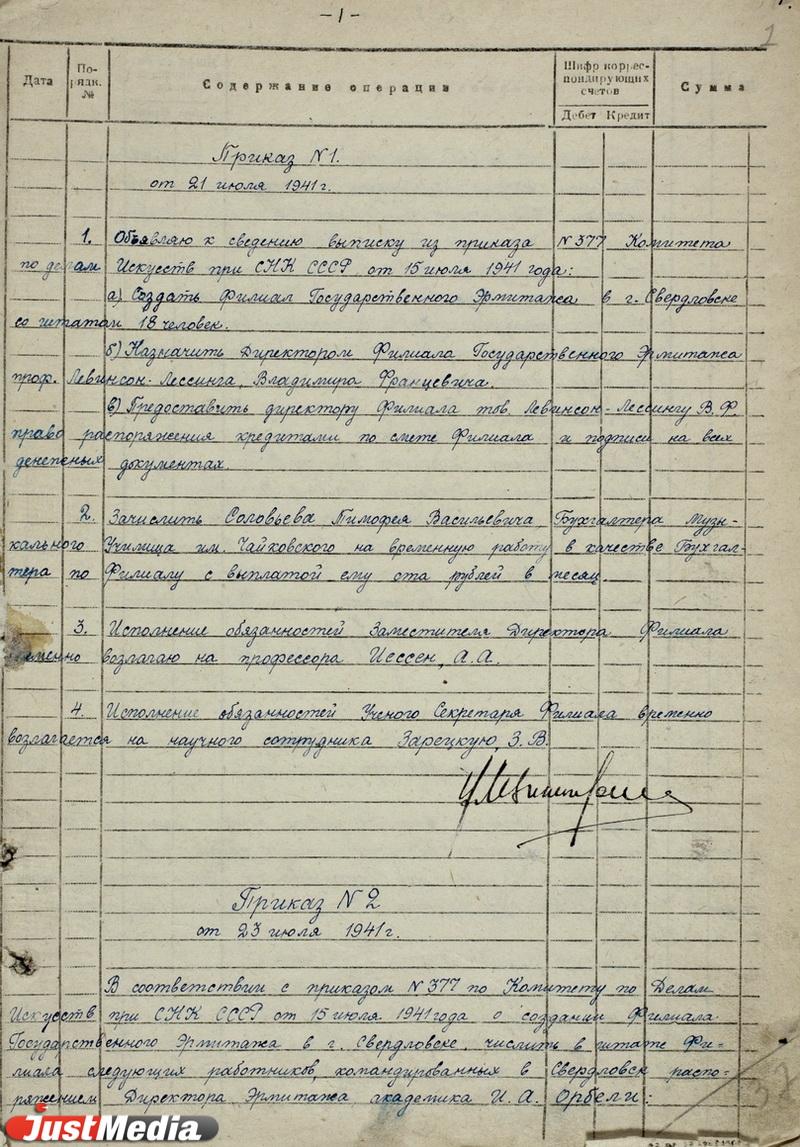 -1-
1
Дата
По-
рядк.
№
Содержание операции
Шифр коррес-
пондирующих
счетов
Дебет Кредит
Сумма
Приказ N1.
от 21 июля 1941 г.
1. Объявляю к сведению выписку из приказа N 377 Комитета
по делам Искусств при СНК СССР от 15 июля 1941 года:
а) Создать Филиал Государственного Эрмитажа в г. Свердловске
со штатом 18 человек.
б) Назначить Директором Филиала Государственного Эрмитажа
проф. Левинсон-Лессинга, Владимира Францевича.
в) Предоставить директору Филиала тов. Левинсон-Лессингу В.Ф.
право распоряжения кредитами по смете Филиала и подписи на всех
денежных документах.
2. Зачислить Соловьева Тимофея Васильевича Бухгалтера Музы-
кального Училища им. Чайковского на временную работу в качестве Бухгал-
тера по Филиалу с выплатой ему ста рублей в месяц.
3. Исполнение обязанностей Заместителя Директора Филиала
временно возлагаю на профессора Иессен, А.А.
4. Исполнение обязанностей Ученого Секретаря Филиала временно
возлагается на научного сотрудника Зарецкую, З.В.
Приказ N 2
от 23 июля 1941 г.
В соответствии с приказом N 377 по Комитету по Делам
Искусств при СНК СССР от 15 июля 1941 года о создании Филиала
Государственного Эрмитажа в г. Свердловске, числить в штате Фи-
лиала следующих работников, командированных в Свердловск распо-
ряжением Директора Эрмитажа академика И.А. Орбели:
JustMedia